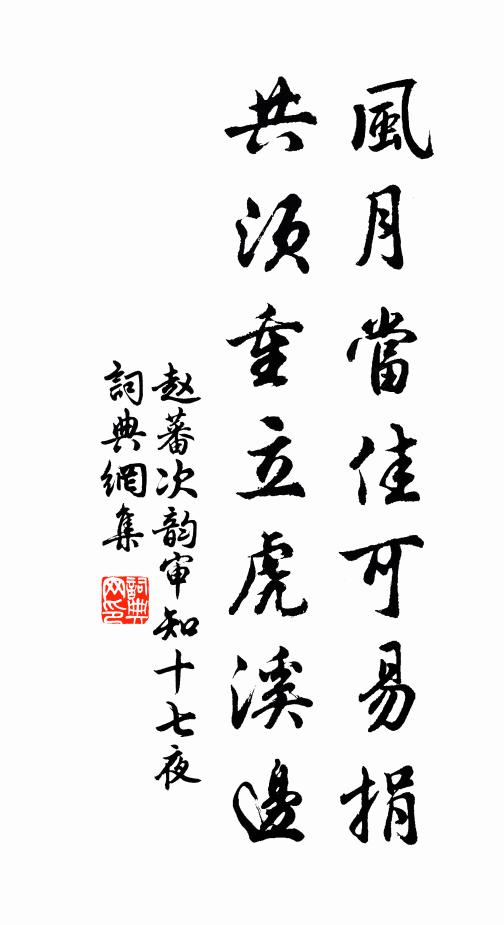 風月當佳可易捐
共須重立虎溪邊
赵蕃次韵审知十七夜
詞典網集
詞典网印